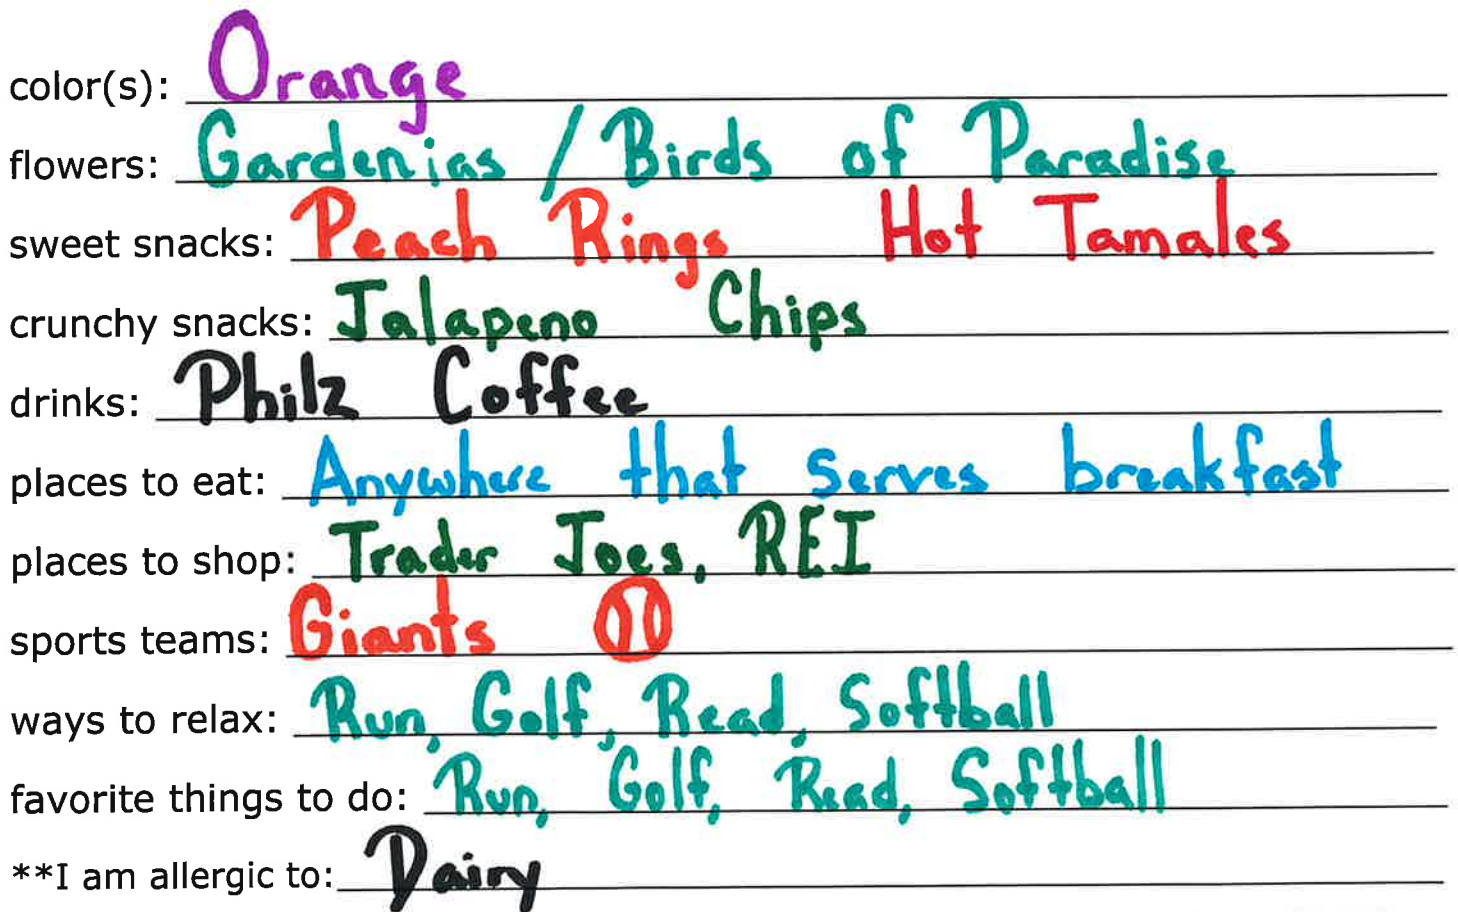 color(s): Orange
flowers: Gardenias / Birds of Paradise
sweet snacks: Peach Rings Hot Tamales
crunchy snacks: Jalapeno Chips
drinks: Philz Coffee
places to eat: Anywhere that serves breakfast
places to shop: Trader Joes, REI
sports teams: Giants
ways to relax: Run, Golf, Read, Softball
favorite things to do: Run, Golf, Read, Softball
**I am allergic to: Dairy